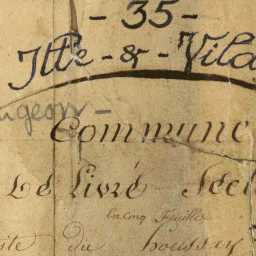 - 35 -
Ille - & - Vila
geon -
Commune
De Livré Sect
en cinq Feuilles
ite du houssay